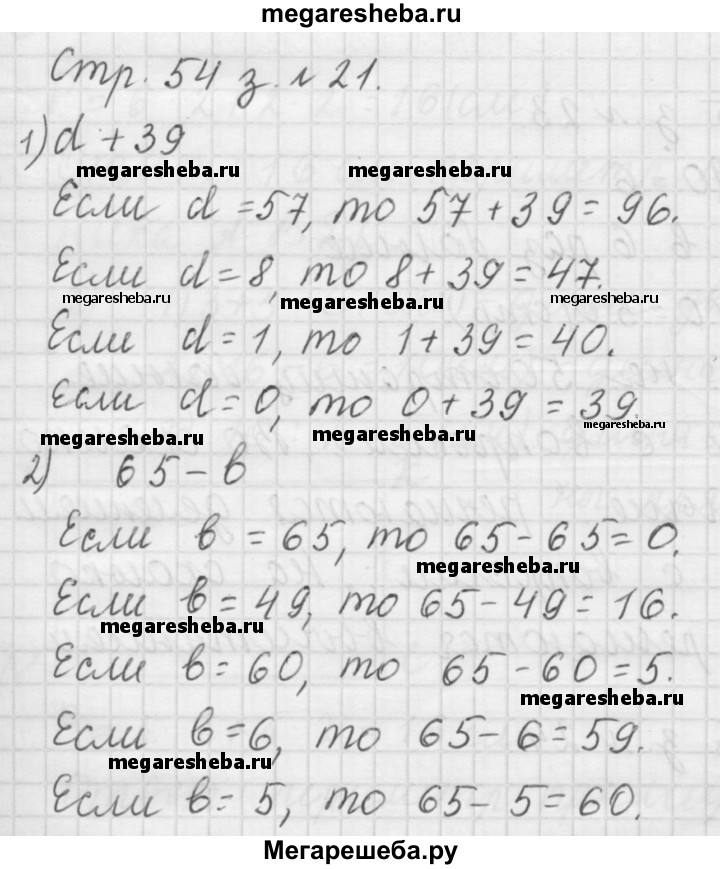 megaresheba.ru
Стр. 54 з. № 21.
1) d + 39
megaresheba.ru megaresheba.ru
Если d = 57, то 57 + 39 = 96.
Если d = 8, то 8 + 39 = 47.
megaresheba.ru megaresheba.ru megaresheba.ru
Если d = 1, то 1 + 39 = 40.
Если d = 0, то 0 + 39 = 39.
megaresheba.ru megaresheba.ru megaresheba.ru
2) 65 - в
Если в = 65, то 65 - 65 = 0.
megaresheba.ru
Если в = 49, то 65 - 49 = 16.
megaresheba.ru
Если в = 60, то 65 - 60 = 5.
megaresheba.ru
Если в = 6, то 65 - 6 = 59.
megaresheba.ru
Если в = 5, то 65 - 5 = 60.
Мегарешеба.ру